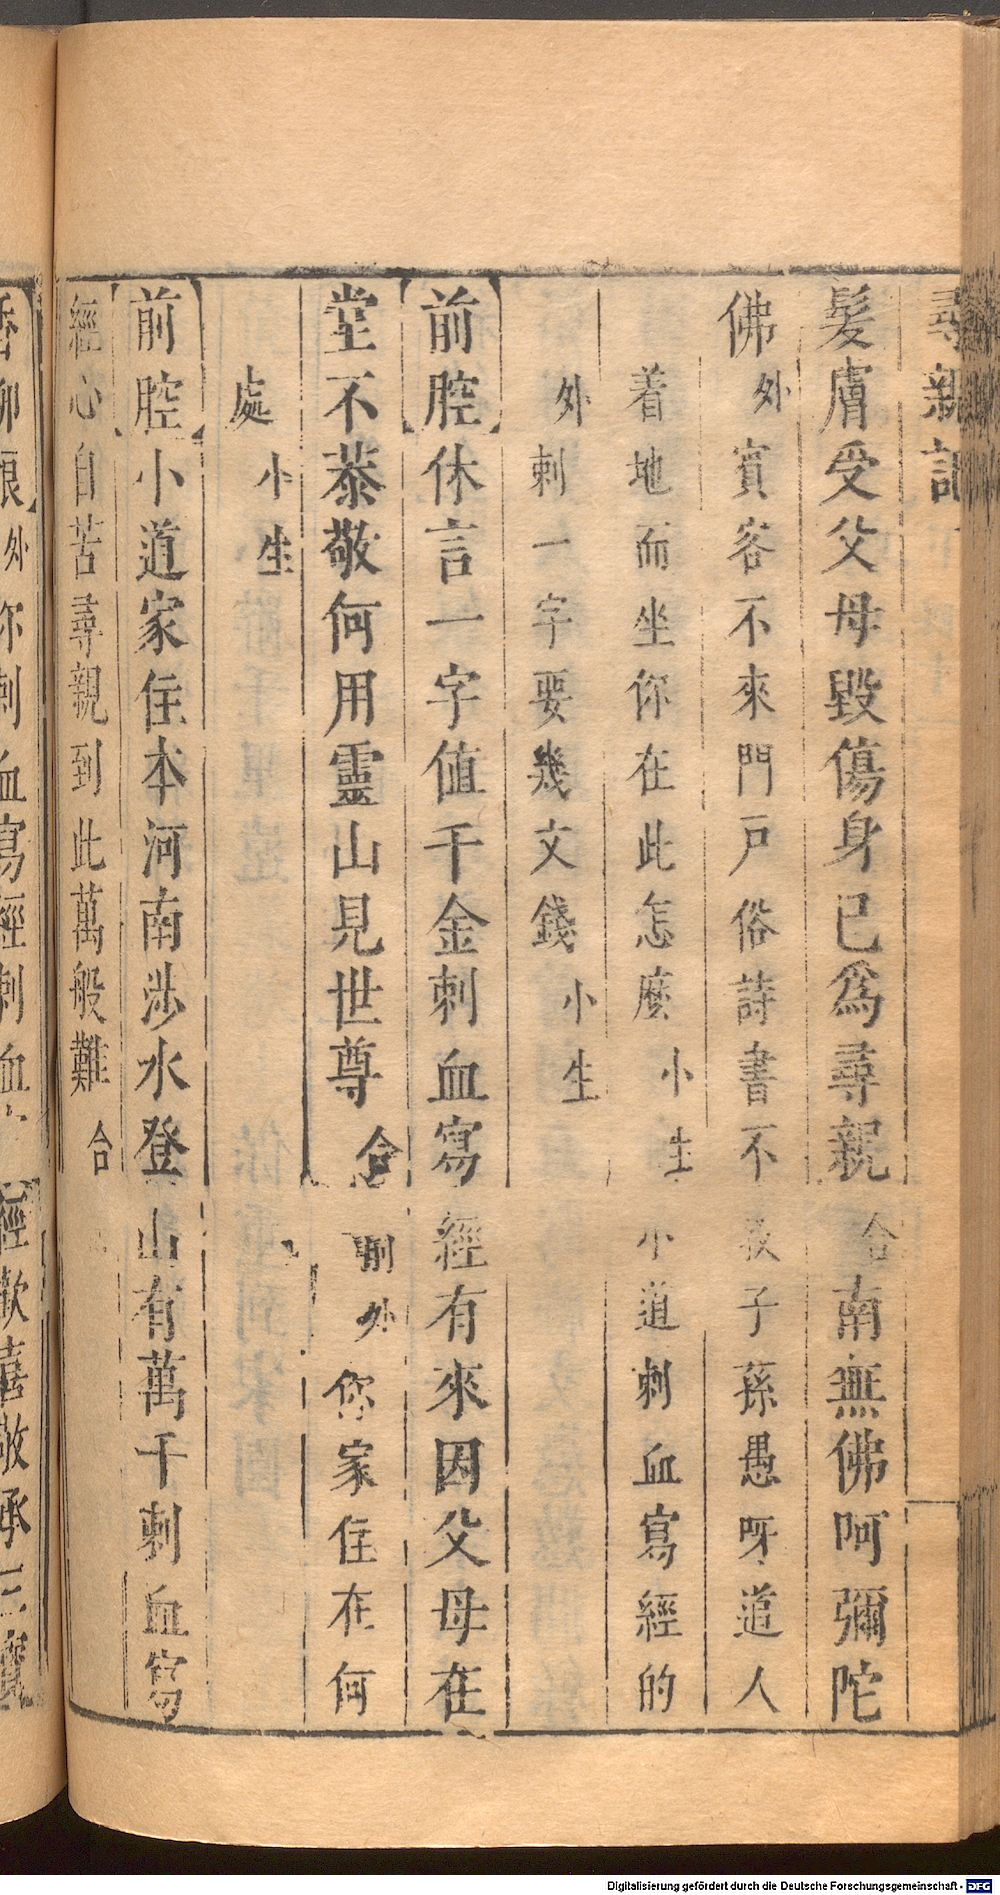 尋親記
髮膚受父母毀傷身已爲尋親合南無佛呵彌陀
佛外賓客不來門戶俗詩書不教子孫愚呀道人
着地而坐你在此怎麽小生小道刺血寫經的
外刺一字要幾文錢小生
前腔休言一字值千金刺血寫經有來因父母在
堂不恭敬何用靈山見世尊合前外你家住在何
處小生
前腔小道家住本河南涉水登山有萬千刺血寫
經心自苦尋親到此萬般難合
外你刺血寫經刺血
經歡喜敬承三寶
Digitalisierung gefördert durch die Deutsche Forschungsgemeinschaft - DFG